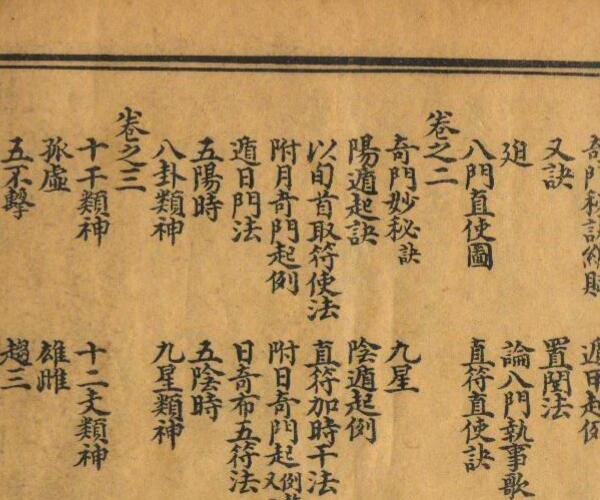 奇門秘訣 遁甲起例
又訣 置閏法
論八門執事歌
八門直使圖 直符直使訣
卷之二
奇門妙秘訣 九星
陽遁起訣 陰遁起例
以旬首取符使法 直符加時干法
附月奇門起例 附日奇門起例又
遁日門法 日奇布五符法
五陽時 五陰時
八卦類神 九星類神
卷之三
十干類神 十二支類神
孤虛 雄雌
五不擊 趨三